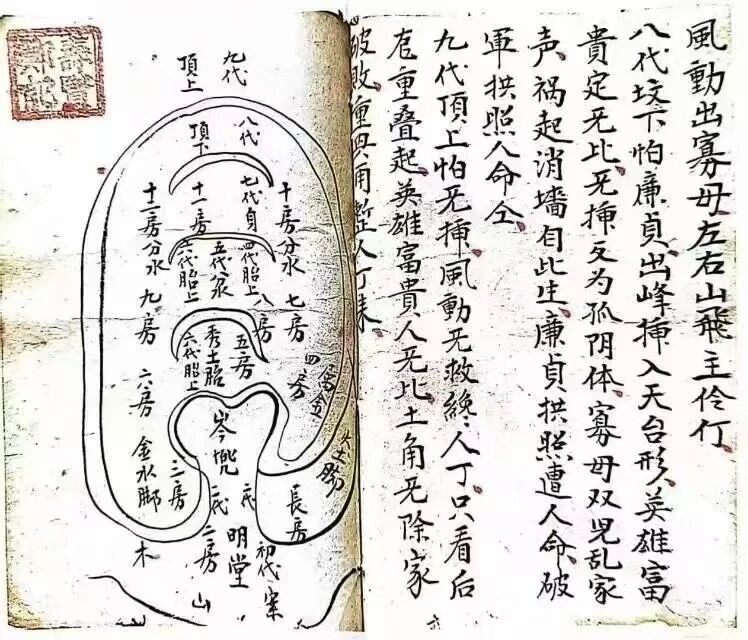 風動出寡毋左右山飛主伶仃
八代坟下怕廉貞出峰揷入天台形英雄富
貴定旡比旡揷反为孤阴体寡毋双児乱家
声祸起消墙自此生廉貞拱照遭人命破
軍拱照人命仝
九代頂上怕旡揷風動旡救絶人丁只看后
重叠起英雄富貴人旡比土角旡除家
破敗重興用整人丁
九代
頂上
八代
頂下
七代貞
十一房
十房分水
十二房分水
四代胎上
五代
六代胎上
八房
七房
九房
五房
秀土胎
六代胎上
四房
六房
岑兜
金水脚
三房
二代
二代
長房
土脚
初代
明堂
二房
案
山
木